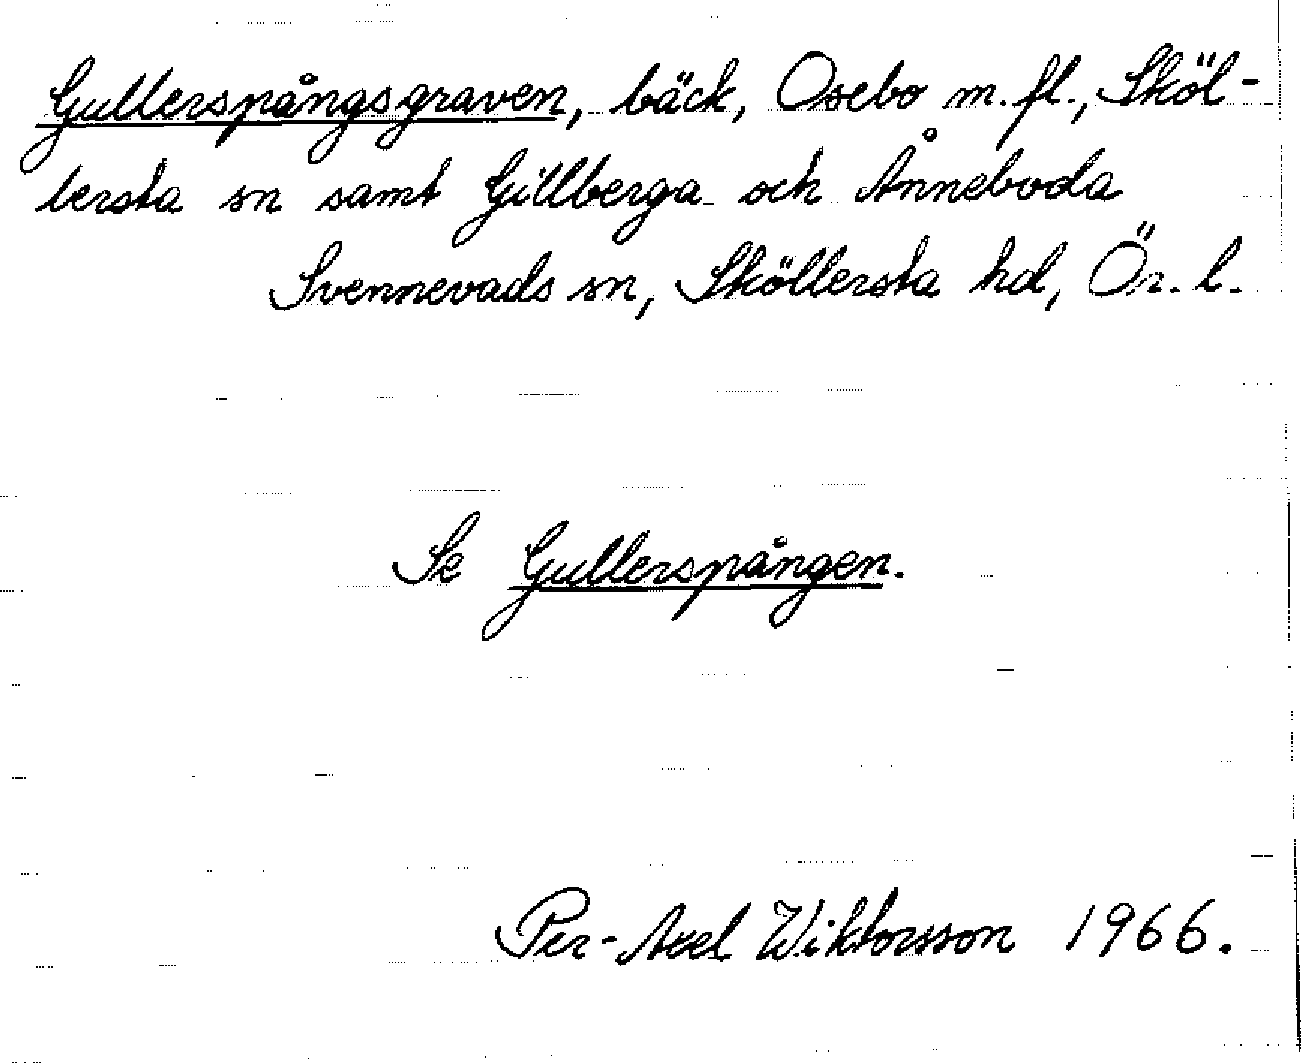 Gullerspångsgraven, bäck, Osebo m.fl., Sköl-
lersta sn samt Gillberga och Ånneboda
Svennevads sn, Sköllersta hd, Ör. l.
Se Gullerspången.
Per-Axel Wiktorsson 1966.